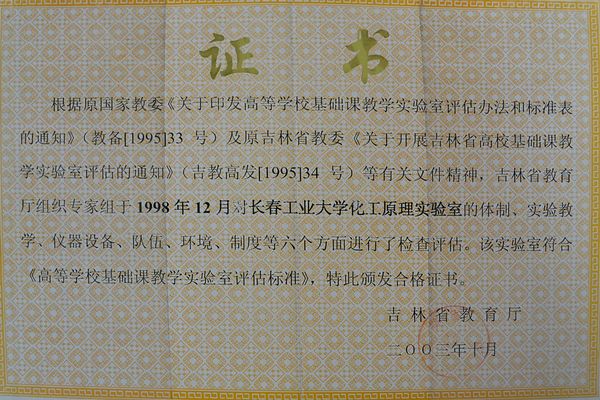 证书
根据原国家教委《关于印发高等学校基础课教学实验室评估办法和标准表
的通知》（教备[1995]33 号）及原吉林省教委《关于开展吉林省高校基础课教
学实验室评估的通知》（吉教高发[1995]34 号）等有关文件精神，吉林省教育
厅组织专家组于 1998 年 12 月对长春工业大学化工原理实验室的体制、实验教
学、仪器设备、队伍、环境、制度等六个方面进行了检查评估。该实验室符合
《高等学校基础课教学实验室评估标准》，特此颁发合格证书。
吉林省教育厅
二〇〇三年十月